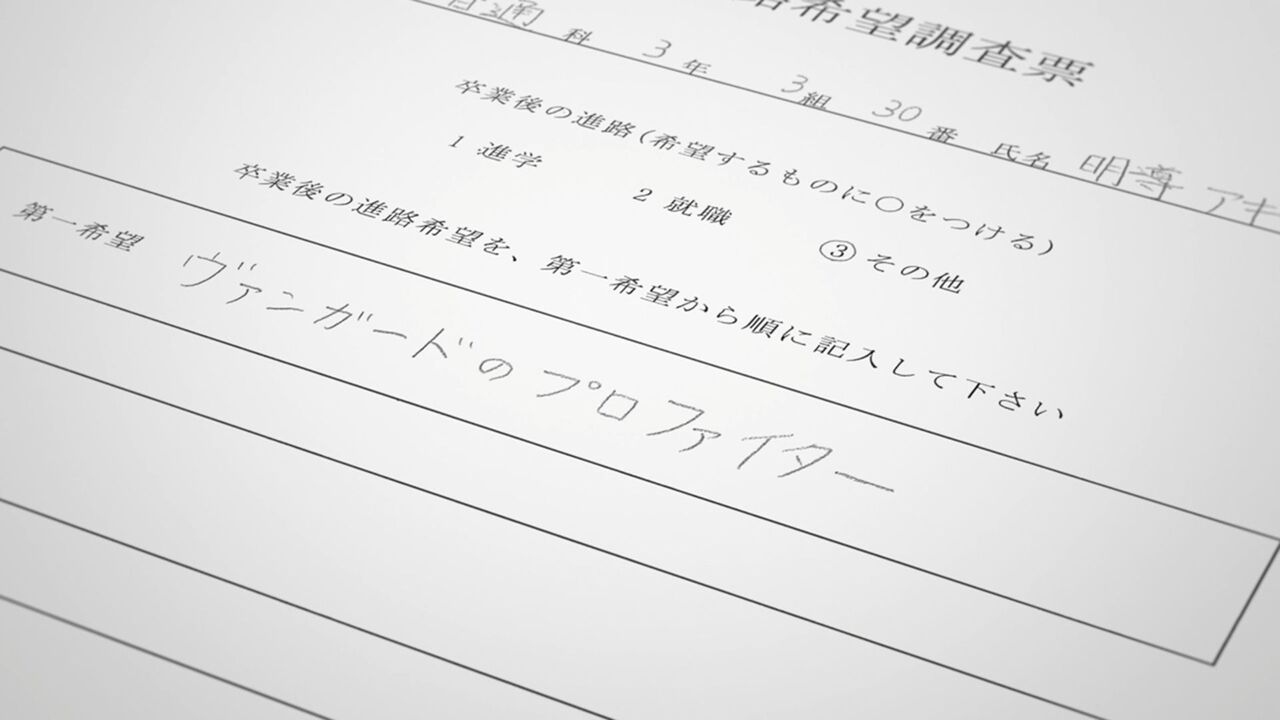 路希望調査票
普通 科 3 年 3 組 30 番 氏名 明導 アキ
卒業後の進路(希望するものに○をつける)
1 進学 2 就職 ③ その他
卒業後の進路希望を、第一希望から順に記入して下さい
第一希望 ヴァンガードのプロファイター